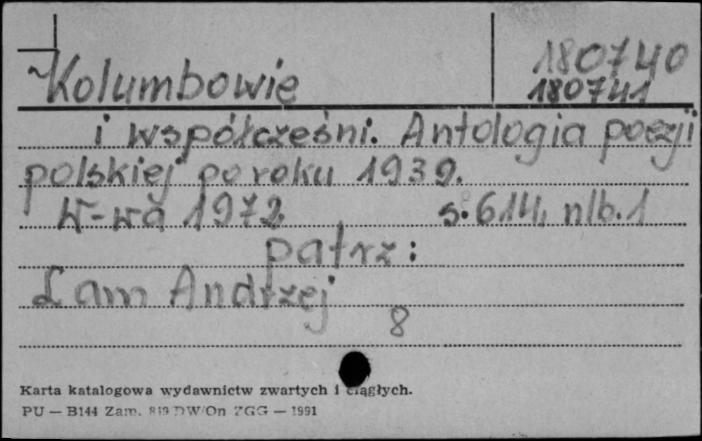 180740
Kolumbowie 180741
i współcześni. Antologia poezji
polskiej po roku 1939.
W-wa 1972 s. 614, nlb. 1
patrz:
Lam Andrzej
8
Karta katalogowa wydawnictw zwartych i ciągłych.
PU — B144 Zam. 819 DW/On ZGG — 1991